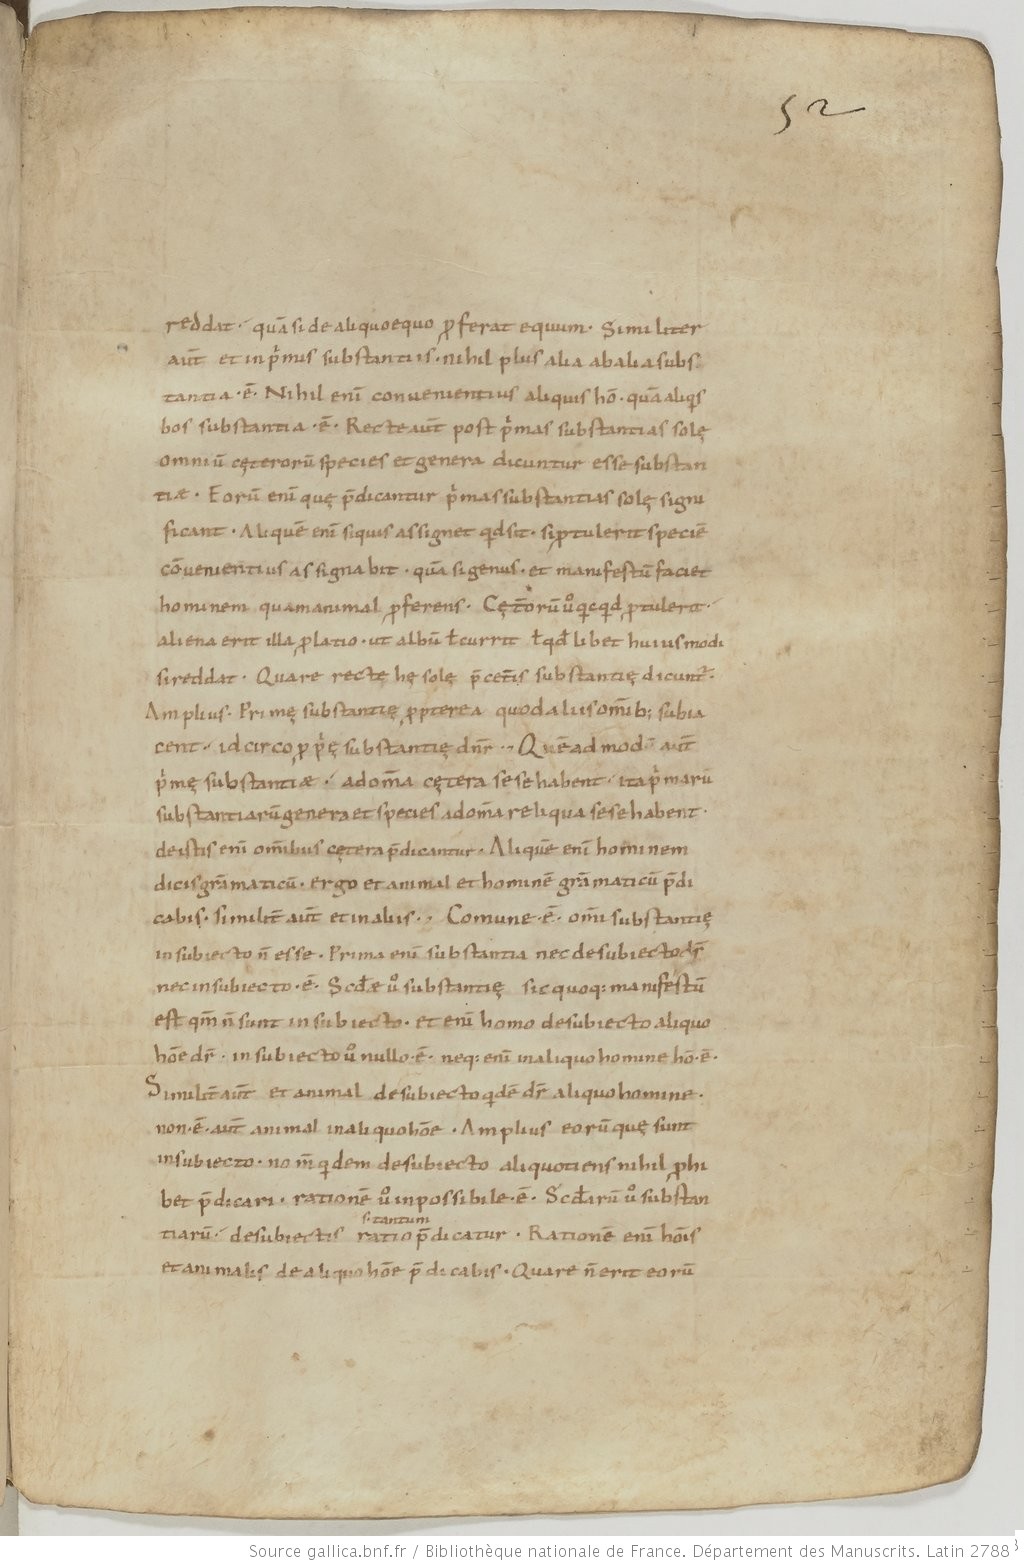 52
reddat · quā si de aliquo equo ꝓferat equum · Similiter
aut̄ et in pͥmis substantiis · nihil plus alia ab alia subs
tantia · ē · Nihil eni̅ convenientius aliquis hō · quā aliqͥs
bos substantia · ē · Recte aut̄ post pͥmas substantias solę
omniū cęterorū species et genera dicuntur esse substan
tiæ · Eorū eni̅ quę p̄dicantur pͥmas substantias solę signi
ficant · Aliquē eni̅ siquis assignet qd sit · si ꝓtulerit speciē
cōvenientius assignabit · quā si genus · et manifestū faciet
hominem quam animal ꝓferens · Cęt̄orū ů qͥcqͥd ꝓtulerit ·
aliena erit illa ꝓlatio · ut albū ł currit ł qd̄ libet huiusmodi
si reddat · Quare recte hę solę p̄ cet̄is substantię dicunt᷒ ·
Amplius · Primę substantię ꝓpterea quod aliis om̄ib; subia
cent · idcirco ꝓpͥę substantię dn̄r · Quēadmodū aut̄
pͥmę substantiæ · ad om̄a cętera sese habent · ita pͥmarū
substantiarū genera et species ad om̄a reliqua sese habent ·
de istis eni̅ om̄ibus cętera p̄dicantur · Aliquē eni̅ hominem
dicis grāmaticū · ergo et animal et hominē grāmaticū p̄di
cabis · similit̄ aut̄ et in aliis · Comune · ē · om̄i substantię
in subiecto n̄ esse · Prima eni̅ substantia nec de subiecto dr̄
nec in subiecto · ē · Scd̄æ ů substantię sic quoq: manifestū
est qm̄ n̄ sunt in subiecto · et eni̅ homo de subiecto aliquo
hōe dr̄ · in subiecto ů nullo · ē · neq: eni̅ in aliquo homine hō · ē ·
Similit̄ aut̄ et animal de subiecto qͥdē dr̄ aliquo homine ·
non · ē · aut̄ animal in aliquo hōe · Amplius eorū quę sunt
in subiecto · nom̄ qͥdem de subiecto aliquotiens nihil ꝓhi
bet p̄dicari · rationē ů inpossibile · ē · Scd̄arū ů substan
s. tantum
tiarū · de subiectis ratio p̄dicatur · Rationē eni̅ hōis
et animalis de aliquo hōe p̄dicabis · Quare n̄ erit eorū
Source gallica.bnf.fr / Bibliothèque nationale de France. Département des Manuscrits. Latin 2788